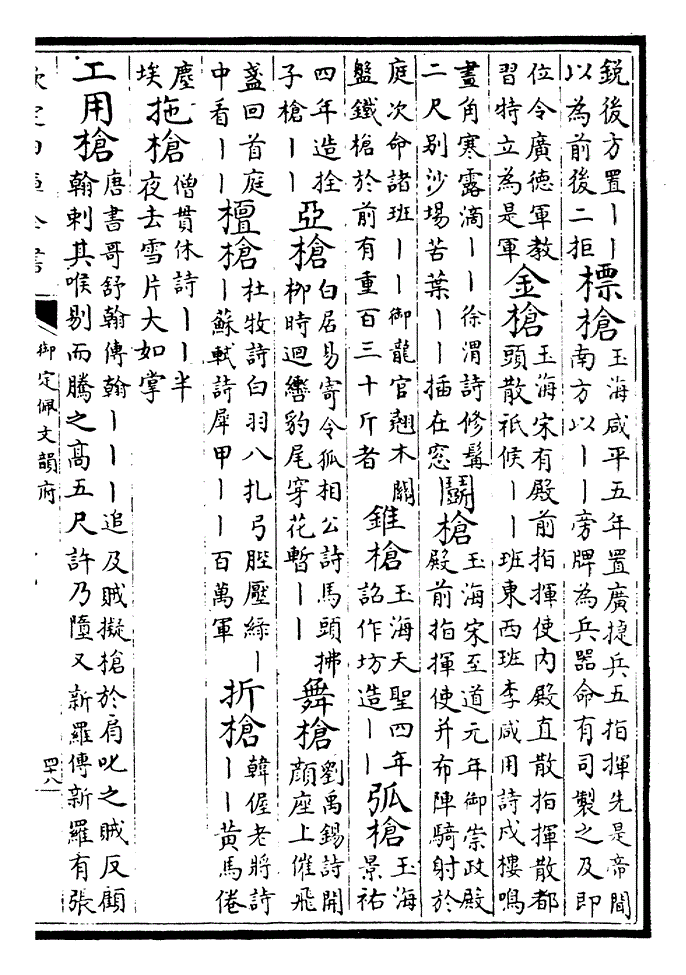 銳後方置一一
以為前後二拒
標槍
玉海咸平五年置廣捷兵五指揮先是帝閱
南方以一一旁牌為兵器命有司製之及即
位令廣德軍教
習特立為是軍
金槍
玉海宋有殿前指揮使内殿直散指揮散都
頭散祇候一一班東西班李咸用詩戍樓鳴
畫角寒露滴一一徐渭詩修髯
二尺別沙場苦葉一一插在窓
鬭槍
玉海宋至道元年御崇政殿
殿前指揮使并布陣騎射於
庭次命諸班一一御龍官翹木闗
盤鐵槍於前有重百三十斤者
錐槍
玉海天聖四年
詔作坊造一一
弧槍
玉海
景祐
四年造拴
子槍一一
亞槍
白居易寄令狐相公詩馬頭拂
栁時迴轡豹尾穿花暫一一
舞槍
劉禹錫詩開
顔座上催飛
盞回首庭
中看一一
檀槍
杜牧詩白羽八扎弓䏶壓綠一
一蘇軾詩犀甲一一百萬軍
折槍
韓偓老將詩
一一黃馬倦
塵
埃
拖槍
僧貫休詩一一半
夜去雪片大如掌
工用槍
唐書哥舒翰傳翰一一一追及賊擬槍於肩叱之賊反顧
翰刺其喉剔而騰之高五尺許乃墮又新羅傳新羅有張
御定佩文韻府
四十八